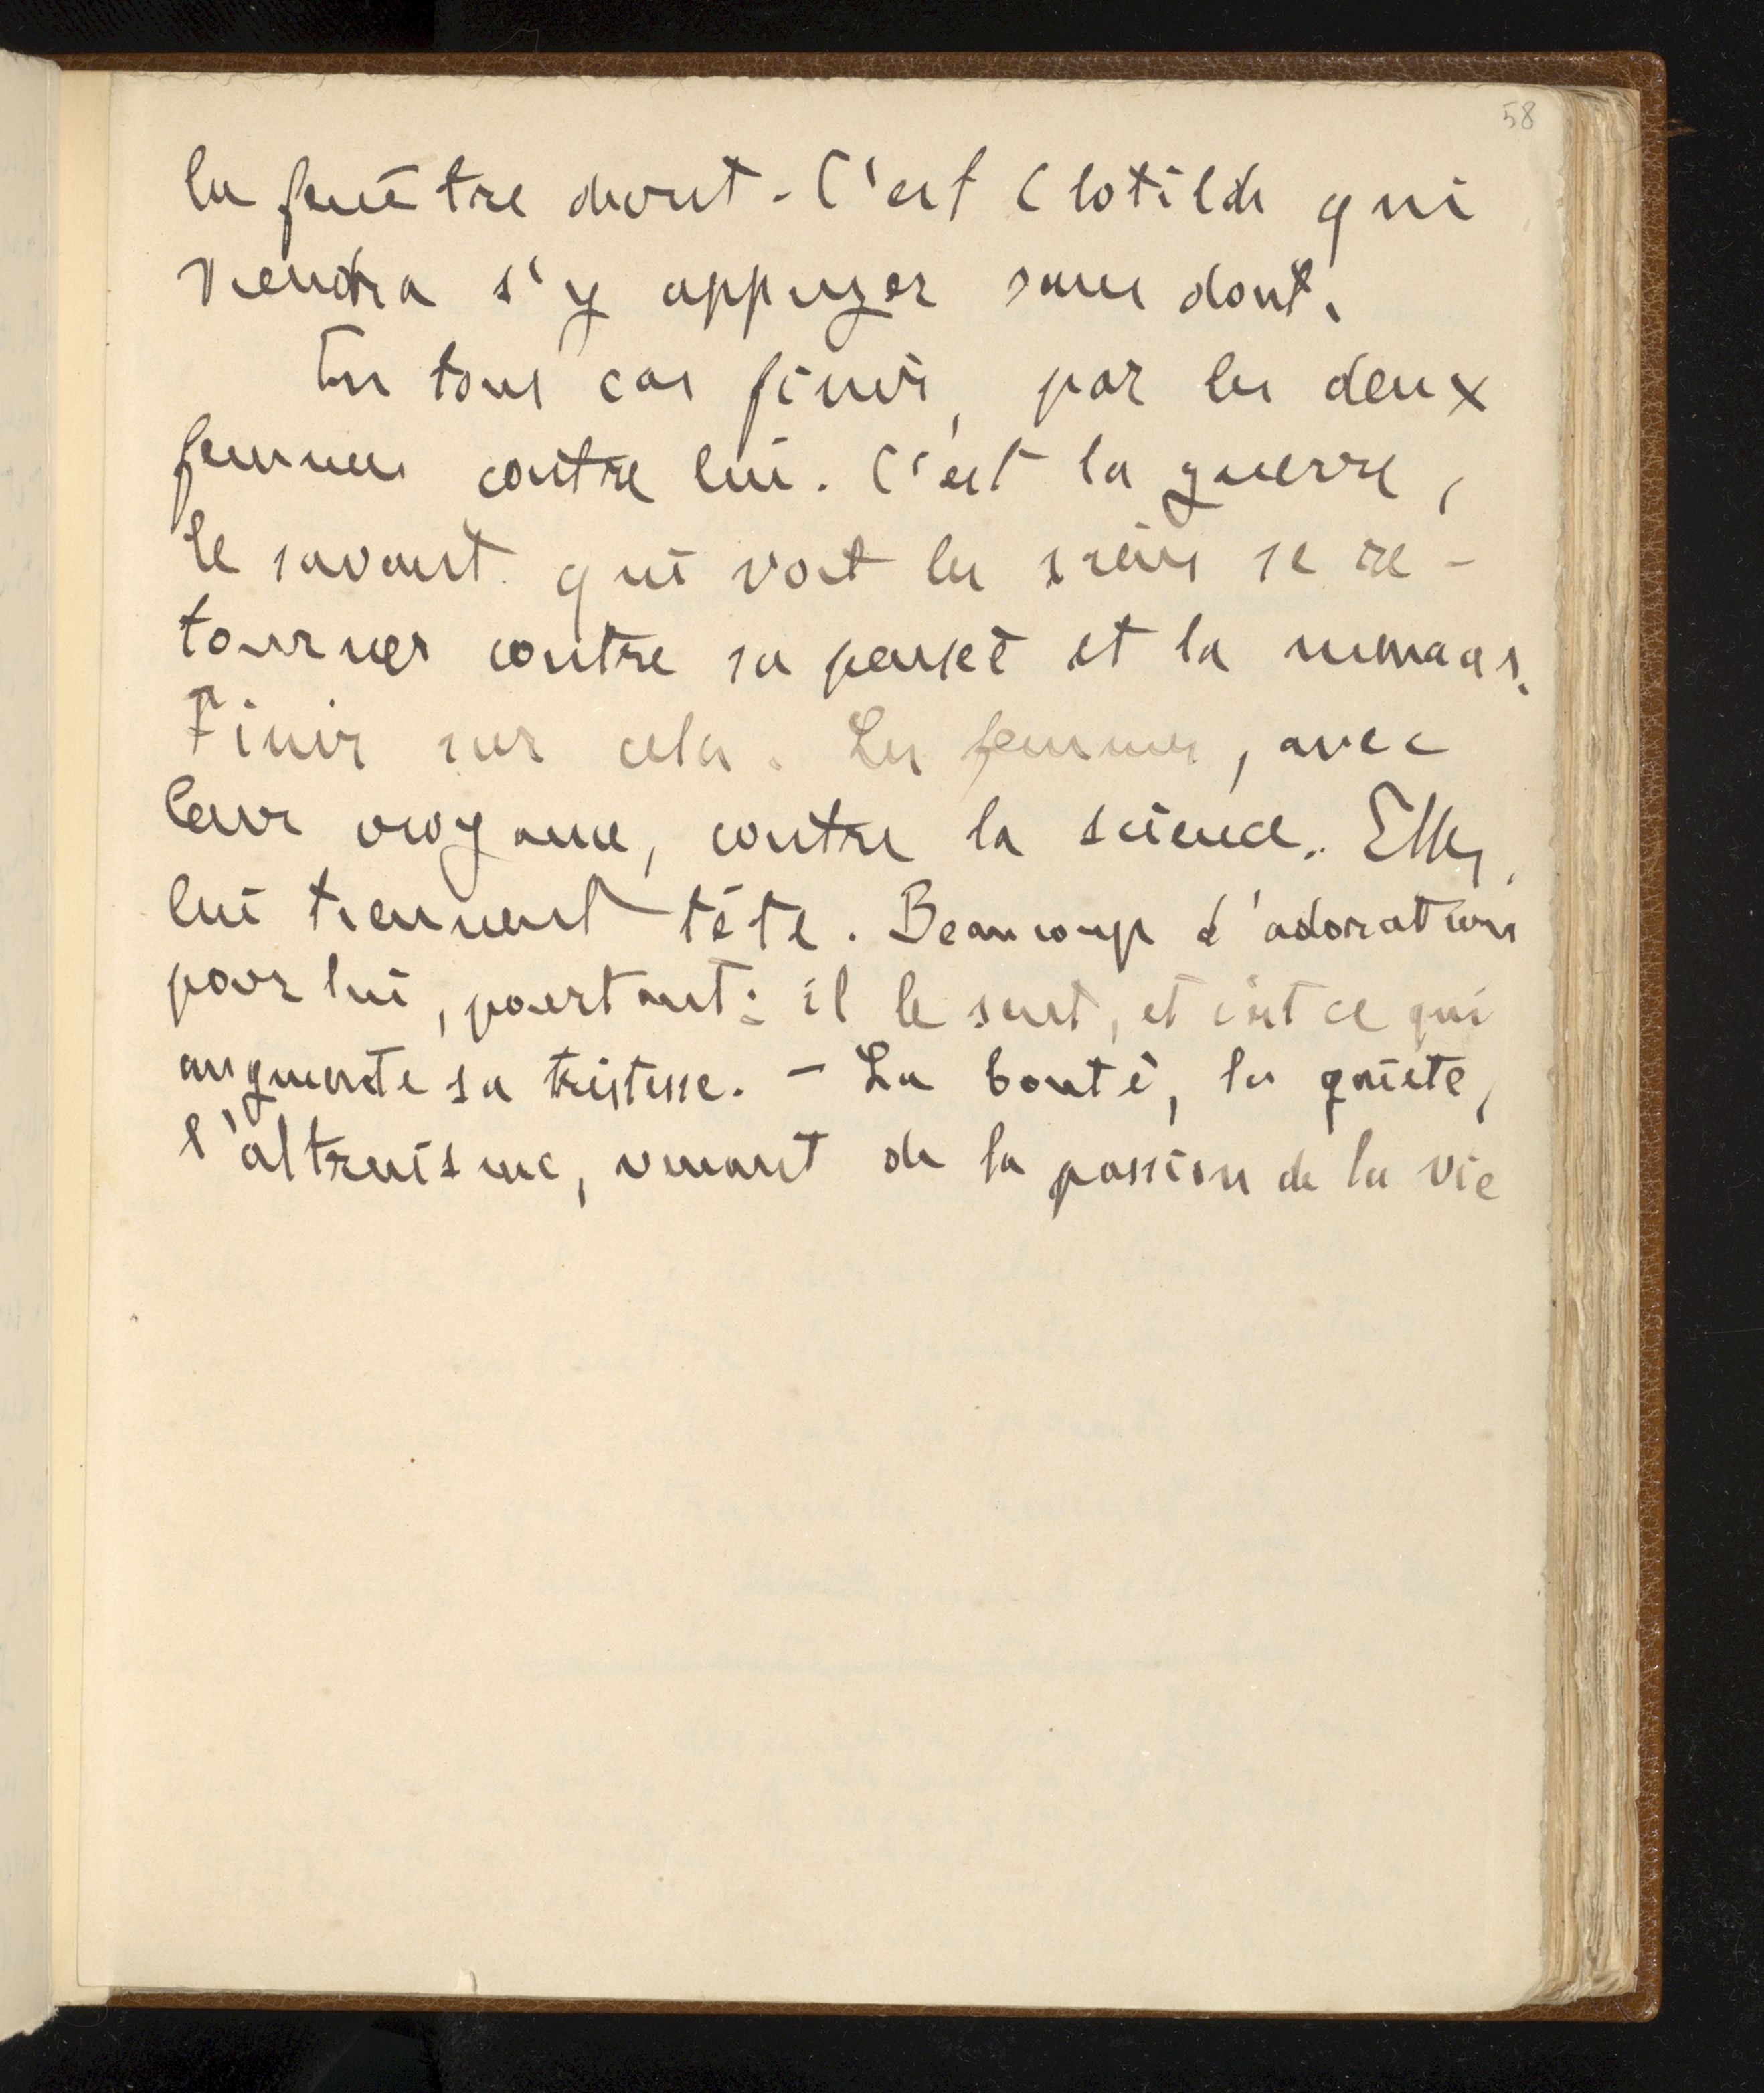 58
la fenêtre devant. C'est Clotilde qui
viendra s'y appuyer sans doute.
En tous cas finir, par les deux
femmes contre lui. C'est la guerre,
le savant qui voit les siens se re-
tourner contre sa pensée et la menacer.
Finir sur cela. Les femmes, avec
leur croyance, contre la science. Elles
lui tiennent tête. Beaucoup d'adoration
pour lui, pourtant : il le sent, et c'est ce qui
augmente sa tristesse. — La bonté, la gaieté,
l'altruisme, venant de la passion de la vie